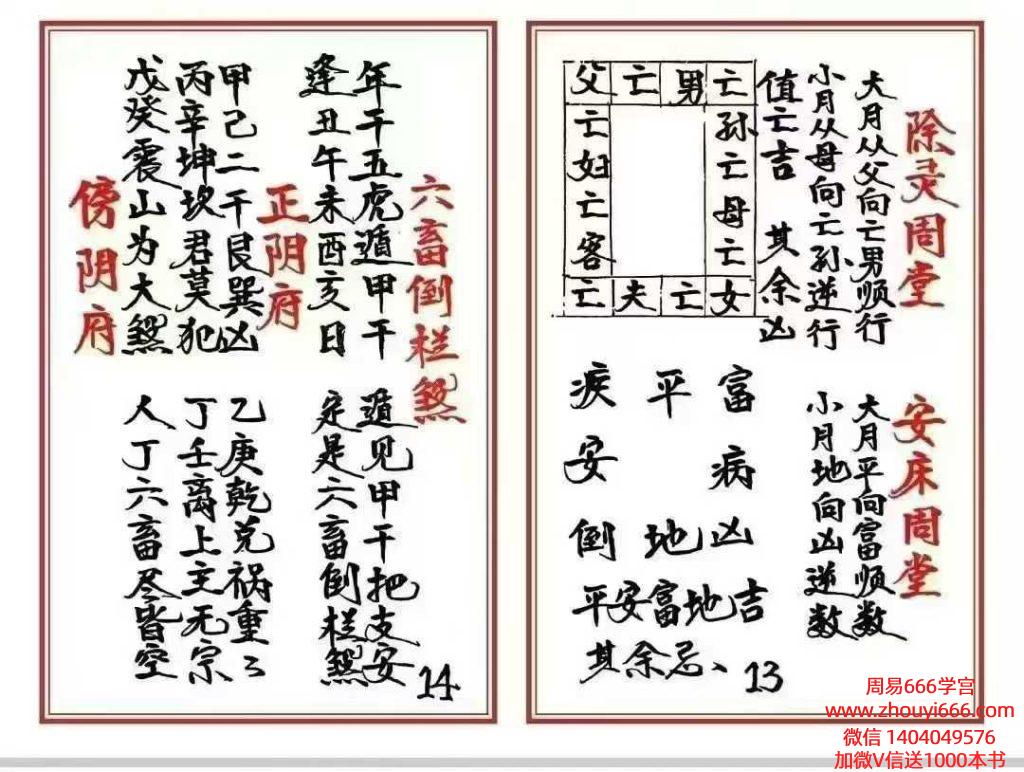 除灵周堂
大月从父向亡男顺行
小月从母向亡孙逆行
值亡吉 其余凶
父亡男亡
亡孙
妇亡
亡母
客亡
亡夫亡女
安床周堂
大月平向富顺数
小月地向凶逆数
疾平富
安病
倒地凶
平安富地吉
其余忌、
13
六畜倒栏煞
年干五虎遁甲干
遁见甲干把支安
逢丑午未酉亥日
定是六畜倒栏煞
正阴府
甲己二干艮巽凶
乙庚乾兑祸重重
丙辛坤坎君莫犯
丁壬离上主无宗
戊癸震山为大煞
人丁六畜尽皆空
傍阴府
14
周易666学宫
www.zhouyi666.com
微信 1404049576
加微V信送1000本书